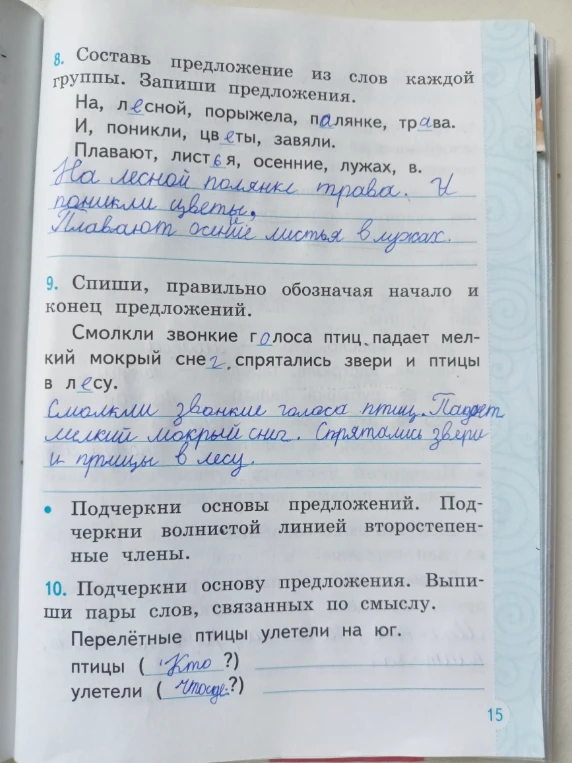 8. Составь предложение из слов каждой
группы. Запиши предложения.
На, лесной, порыжела, полянке, трава.
И, поникли, цветы, завяли.
Плавают, листья, осенние, лужах, в.
На лесной полянке трава. И
поникли цветы.
Плавают осение листья в лужах.
9. Спиши, правильно обозначая начало и
конец предложений.
Смолкли звонкие голоса птиц. падает мел-
кий мокрый снег. спрятались звери и птицы
в лесу.
Смолкли звонкие голоса птиц. Падает
мелкий мокрый снег. Спрятались звери
и птицы в лесу.
• Подчеркни основы предложений. Под-
черкни волнистой линией второстепен-
ные члены.
10. Подчеркни основу предложения. Выпи-
ши пары слов, связанных по смыслу.
Перелётные птицы улетели на юг.
птицы ( Кто ?)
улетели ( ?)
15